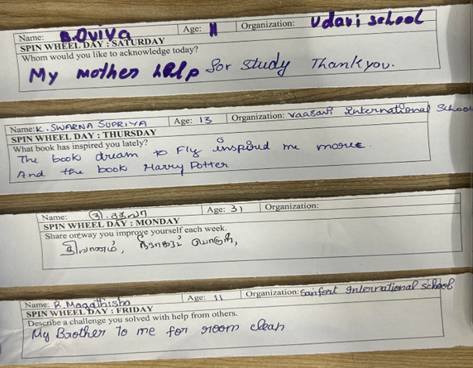 Name: B.Oviya Age: 11 Organization: Udavi school
SPIN WHEEL DAY : SATURDAY
Whom would you like to acknowledge today?
My mother help for study Thankyou.
Name: K. SWARNA SUPRIYA Age: 13 Organization: Vaasavi International School
SPIN WHEEL DAY : THURSDAY
What book has inspired you lately?
The book dream to Fly inspired me more.
And the book Harry Potter
Name: Age: 31 Organization:
SPIN WHEEL DAY : MONDAY
Share one way you improve yourself each week.
Name: B. Magathisha Age: 11 Organization: Sanfort International school
SPIN WHEEL DAY : FRIDAY
Describe a challenge you solved with help from others.
My Brother To me for room clean